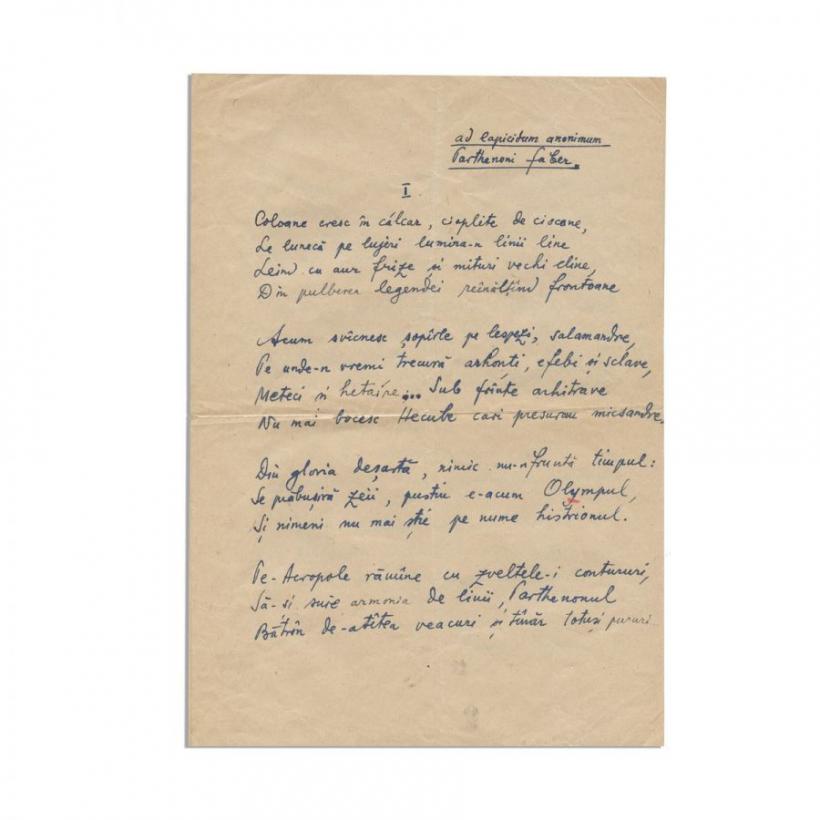 ad lapicidum anonimum
Parthenoni faber.
I
Coloane cresc în calcar, cioplite de ciocane,
Le lunecă pe lujeri lumina-n linii line
Leind cu aur frize și mituri vechi eline,
Din pulberea legendei reînălțînd frontoane
Acum svîcnesc șopîrle pe lespezi, salamandre,
Pe unde-n vremi trecură arhonți, efebi și sclave,
Meteci și hetaire... Sub frînte arhitrave
Nu mai bocesc Hecube cari presurau micsandre.
Din gloria deșartă, nimic nu-nfruntă timpul:
Se prăbușiră zeii, pustiu e-acum Olympul,
Și nimeni nu mai știe pe nume histrionul.
Pe-Acropole rămîne cu zveltele-i contururi,
Să-și suie armonia de linii, Parthenonul
Bătrîn de-atîtea veacuri și tînăr totuși pururi